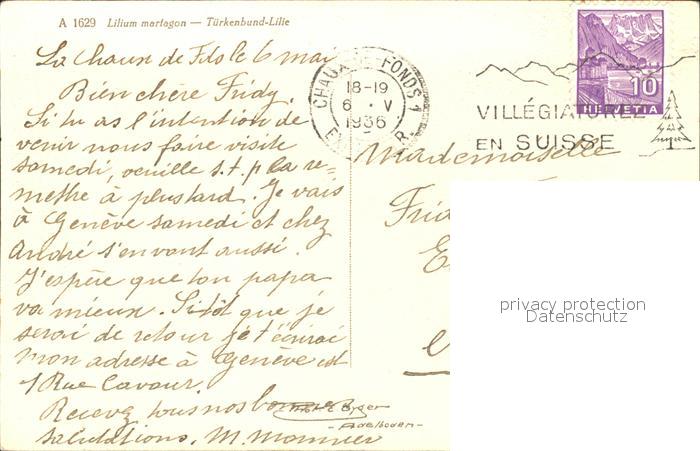 A 1629 Lilium martagon — Türkenbund-Lilie
La Chaux de Fds le 6 mai
Bien chère Fridy.
Si tu as l'intention de
venir nous faire visite
samedi, veuille s.t.p la re=
methe à plustard. Je vais
à Genève samedi et chez
André s'en vont aussi.
J'espère que ton papa
va mieux. Sitôt que je
serai de retour je t'écrirai
mon adresse à Genève est
1 Rue Cavour.
Recevez tous nos bonnes
salutations. M. Monnier
Gyger
Adelboden
CHAUX DE FONDS 1
18-19
6 . V
1936
VILLÉGIATUREZ
EN SUISSE
10
HELVETIA
Mademoiselle
privacy protection
Datenschutz